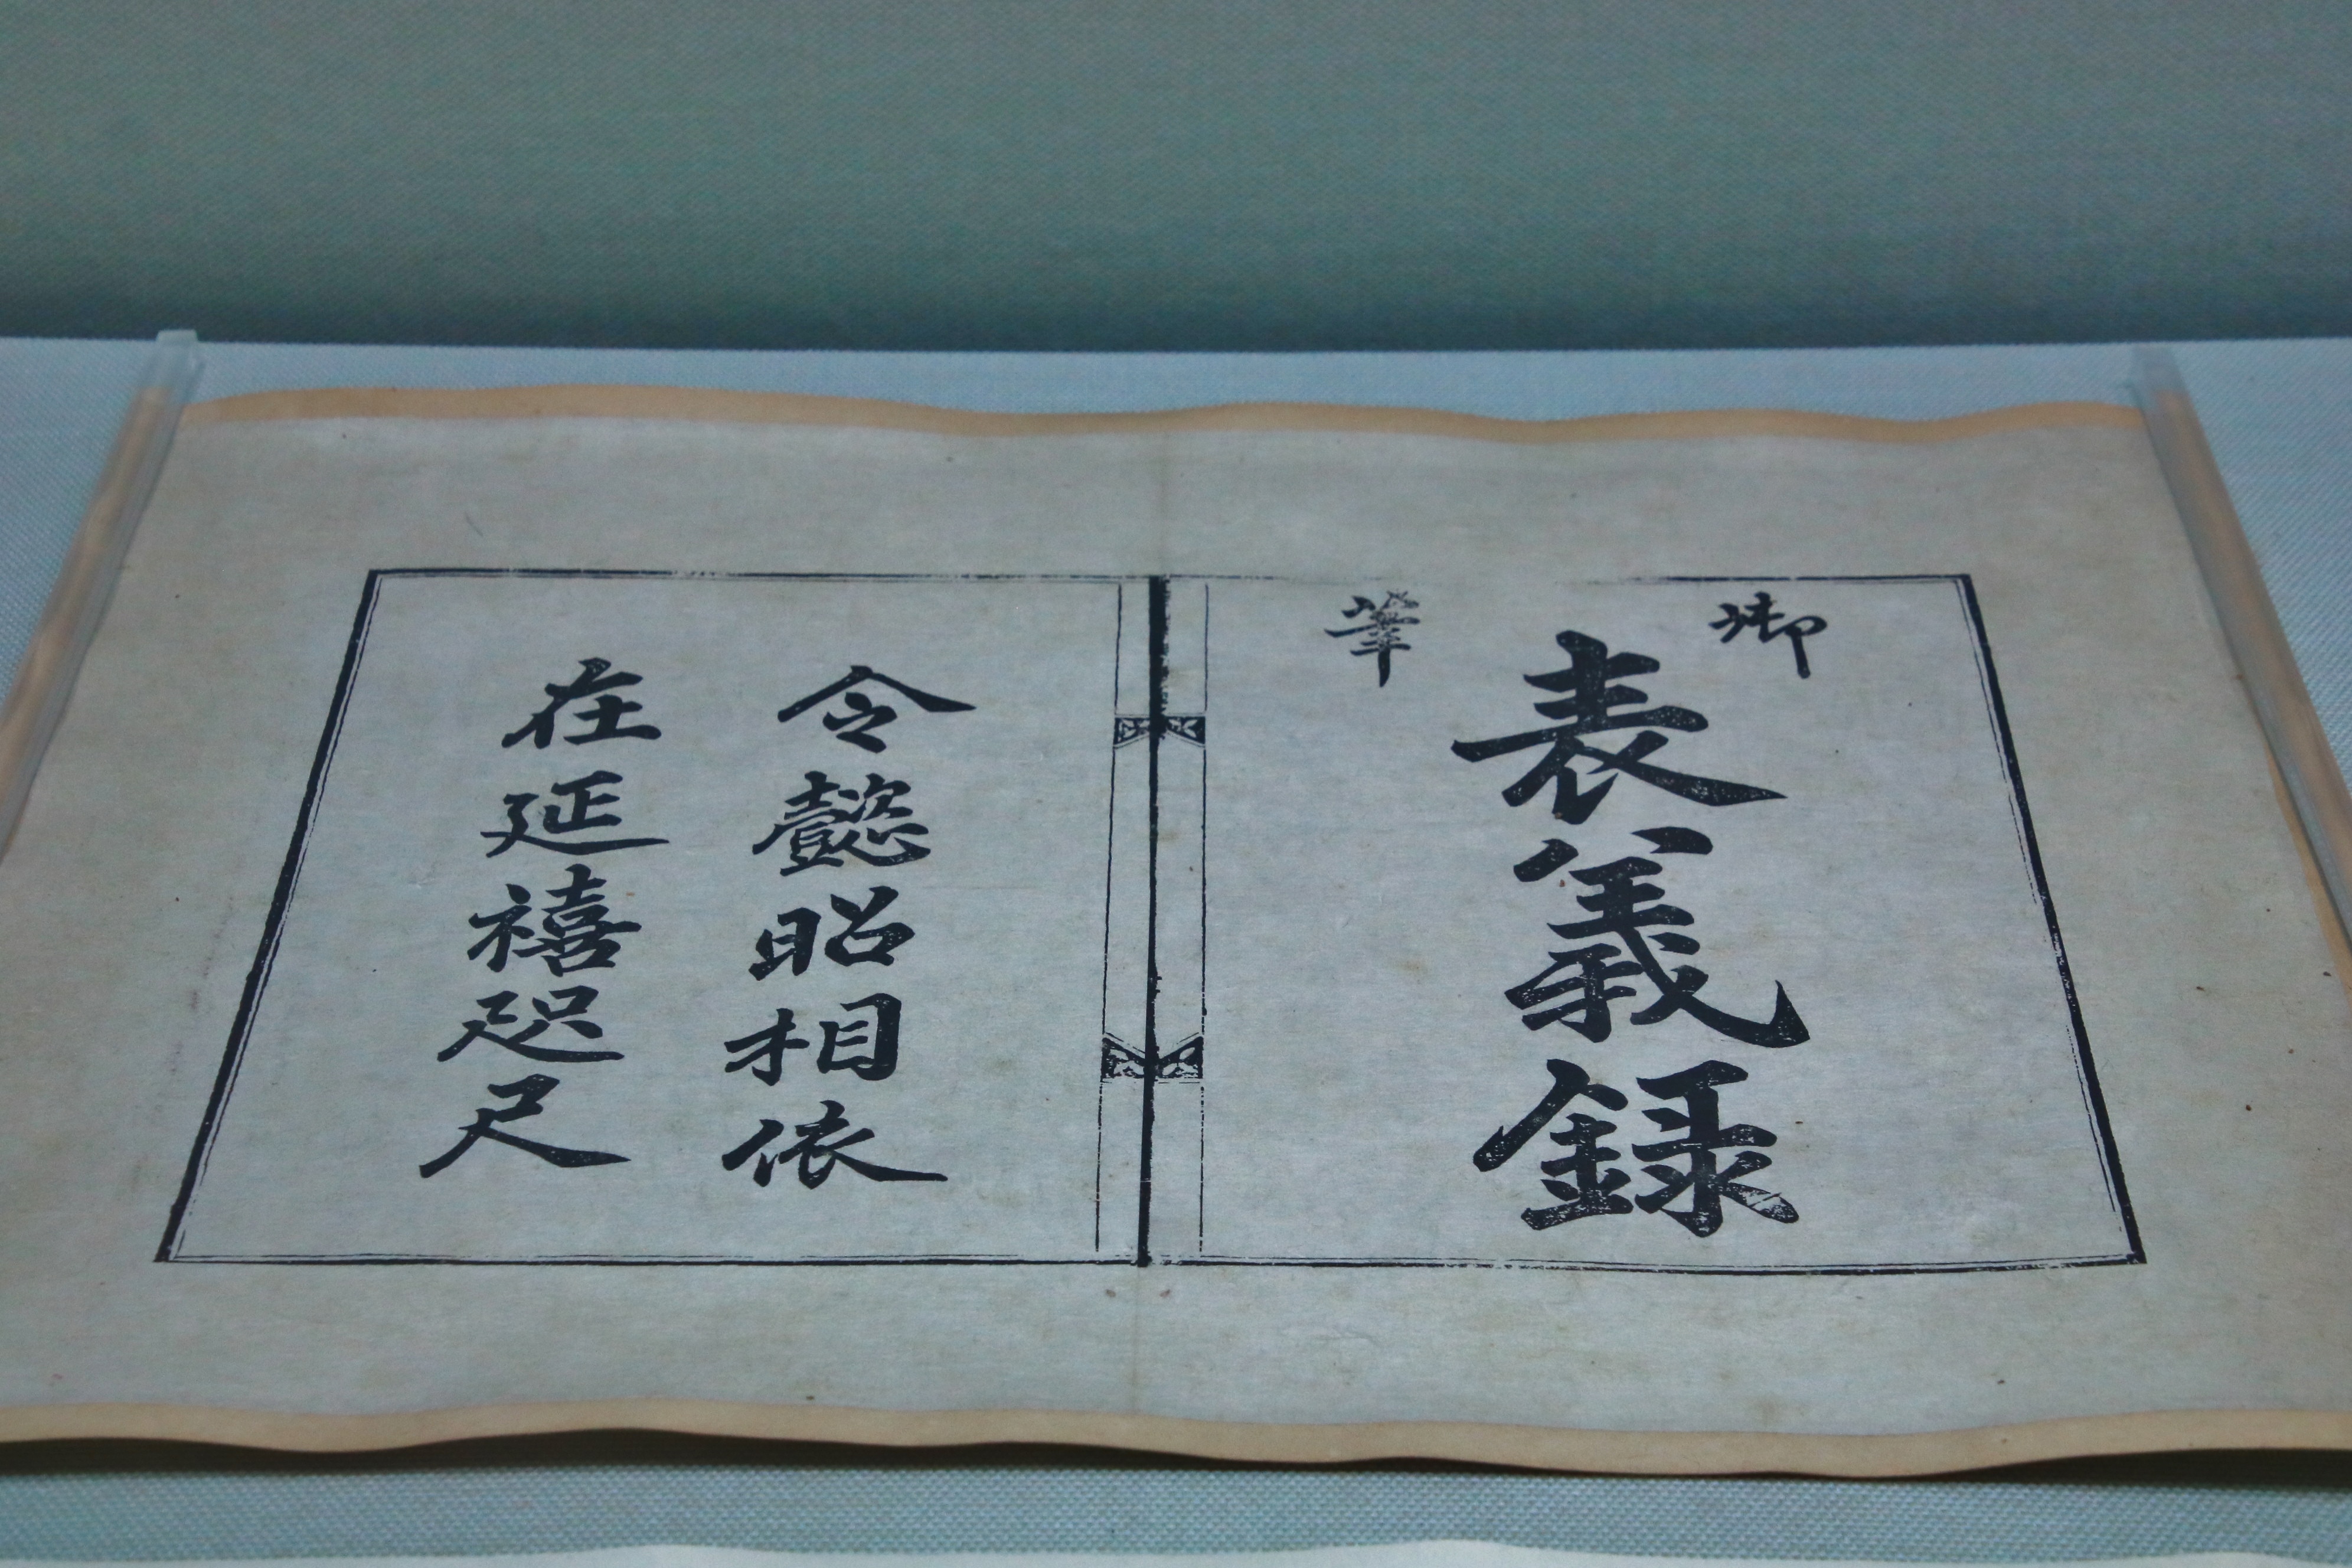 御筆
表義錄
令懿昭相依
在延禧咫尺